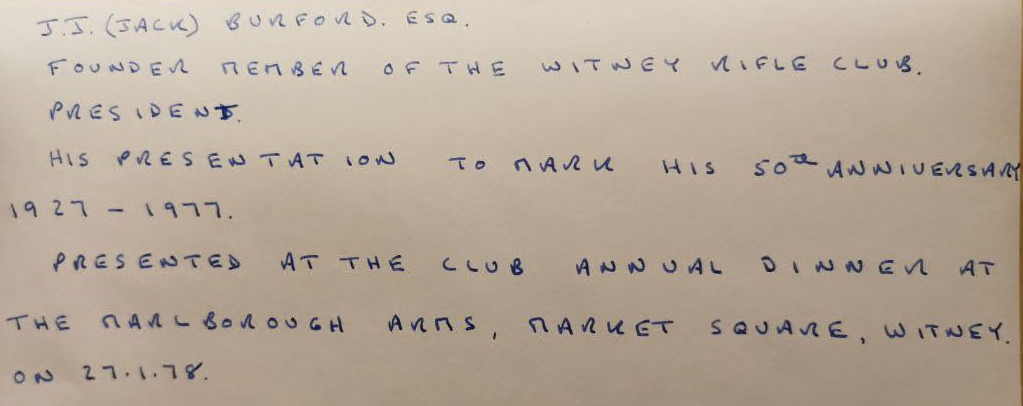 J.J. (JACK) BURFORD. ESQ.
FOUNDER MEMBER OF THE WITNEY RIFLE CLUB.
PRESIDENT.
HIS PRESENTATION TO MARK HIS 50TH ANNIVERSARY
1927 - 1977.
PRESENTED AT THE CLUB ANNUAL DINNER AT
THE MARLBOROUGH ARMS, MARKET SQUARE, WITNEY.
ON 27.1.78.